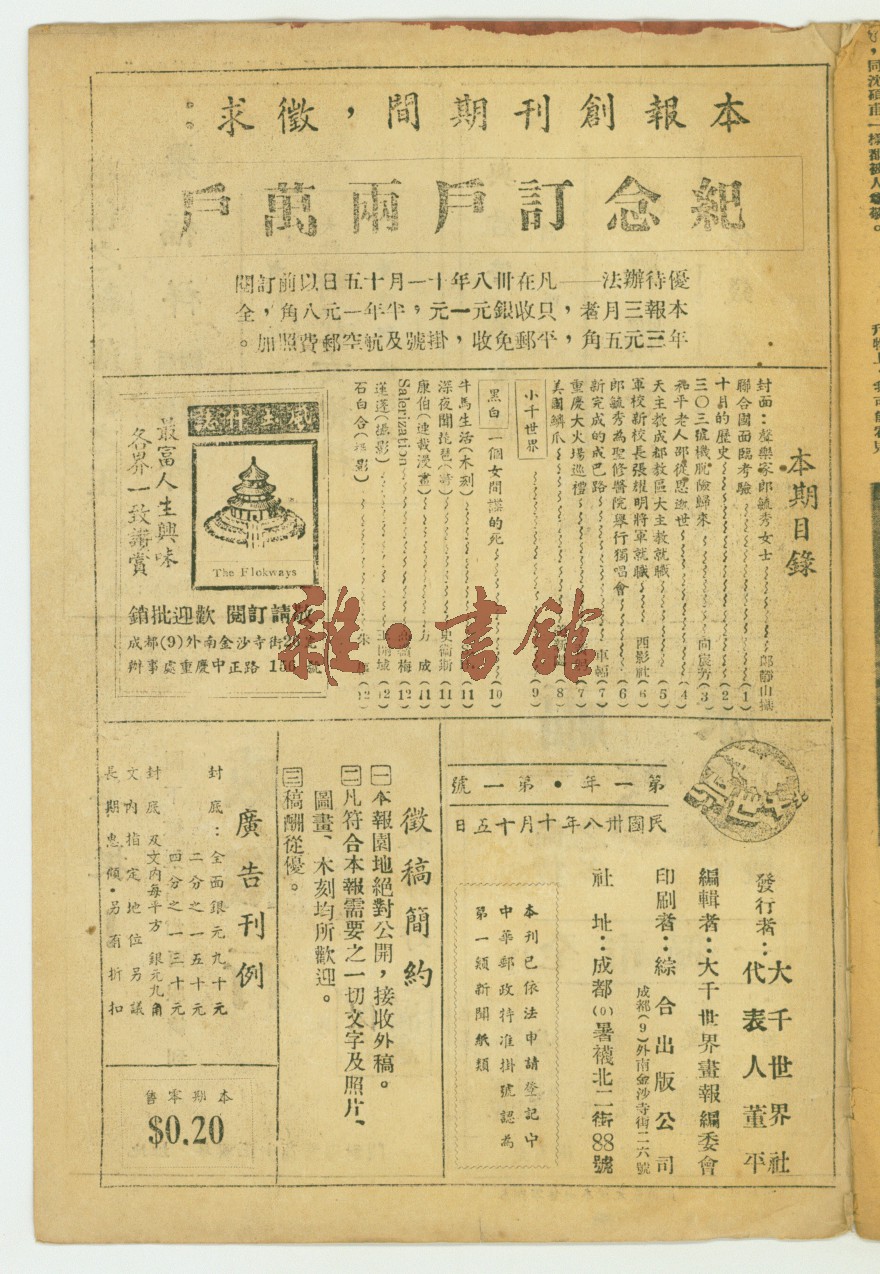 本報創刊期間，徵求：
紀念訂戶兩萬戶
優待辦法——凡在卅八年十一月十五日以前訂閱
本報三月者，只收銀元一元，半年一元八角，全
年三元五角，平郵免收，掛號及航空郵費照加。
本期目錄
封面：聲樂家郎毓秀女士 郎靜山攝
聯合國面臨考驗 (1)
十月的歷史 (2)
三〇三號機脫險歸來 (3)
和平老人邵從恩逝世 (4)
天主教成都教區大主教就職 (5)
軍校新校長張耀明將軍就職 西影社 (6)
郎毓秀為聖修醫院舉行獨唱會 (6)
新完成的成巴路 車輻 (7)
重慶大火場巡禮 (7)
美國鱗爪 (8)
小千世界 (9)
黑白 一個女間諜的死 (10)
牛馬生活(木刻) (11)
深夜聞琵琶(詩) (11)
康伯(連載漫畫) 成 (11)
Salerization 梅 (12)
蓬蓬(攝影) 城 (12)
石白合(攝影) 朱 (12)
風土什誌
The Flokways
最富人生興味
各界一致讚賞
敬請訂閱 歡迎批銷
成都(9)外南金沙寺街26號
辦事處重慶中正路 156號
第一年・第一號
民國卅八年十月十五日
發行者：大千世界社
代表人董平
編輯者：大千世界畫報編委會
印刷者：綜合出版公司
成都(9)外南金沙寺街二六號
社址：成都(0)暑襪北二街88號
本刊已依法申請登記中
中華郵政特准掛號認為
第一類新聞紙類
徵稿簡約
㊀本報園地絕對公開，接收外稿。
㊁凡符合本報需要之一切文字及照片、
圖畫、木刻均所歡迎。
㊂稿酬從優。
廣告刊例
封底：全面銀元九十元
二分之一五十元
四分之一三十元
封底及文內每平方銀元九角
文內指定地位另議
長期惠顧・另有折扣
本期零售
$0.20
雜・書館